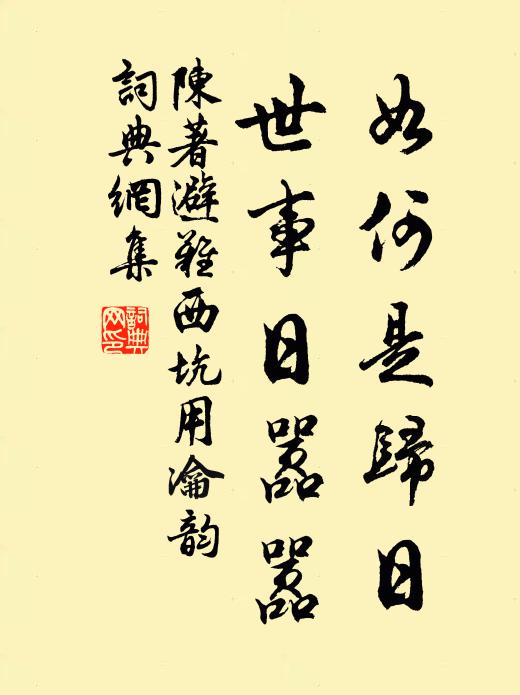 如何是歸日
世事日嚣嚣
陳著避難西坑用瀹韵
詞典網集
詞典網印